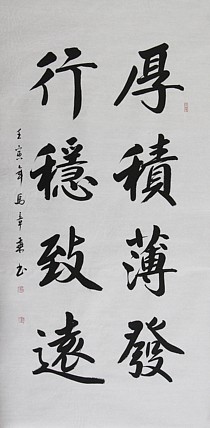 厚積薄發
行穩致遠
壬寅年馬辛東书